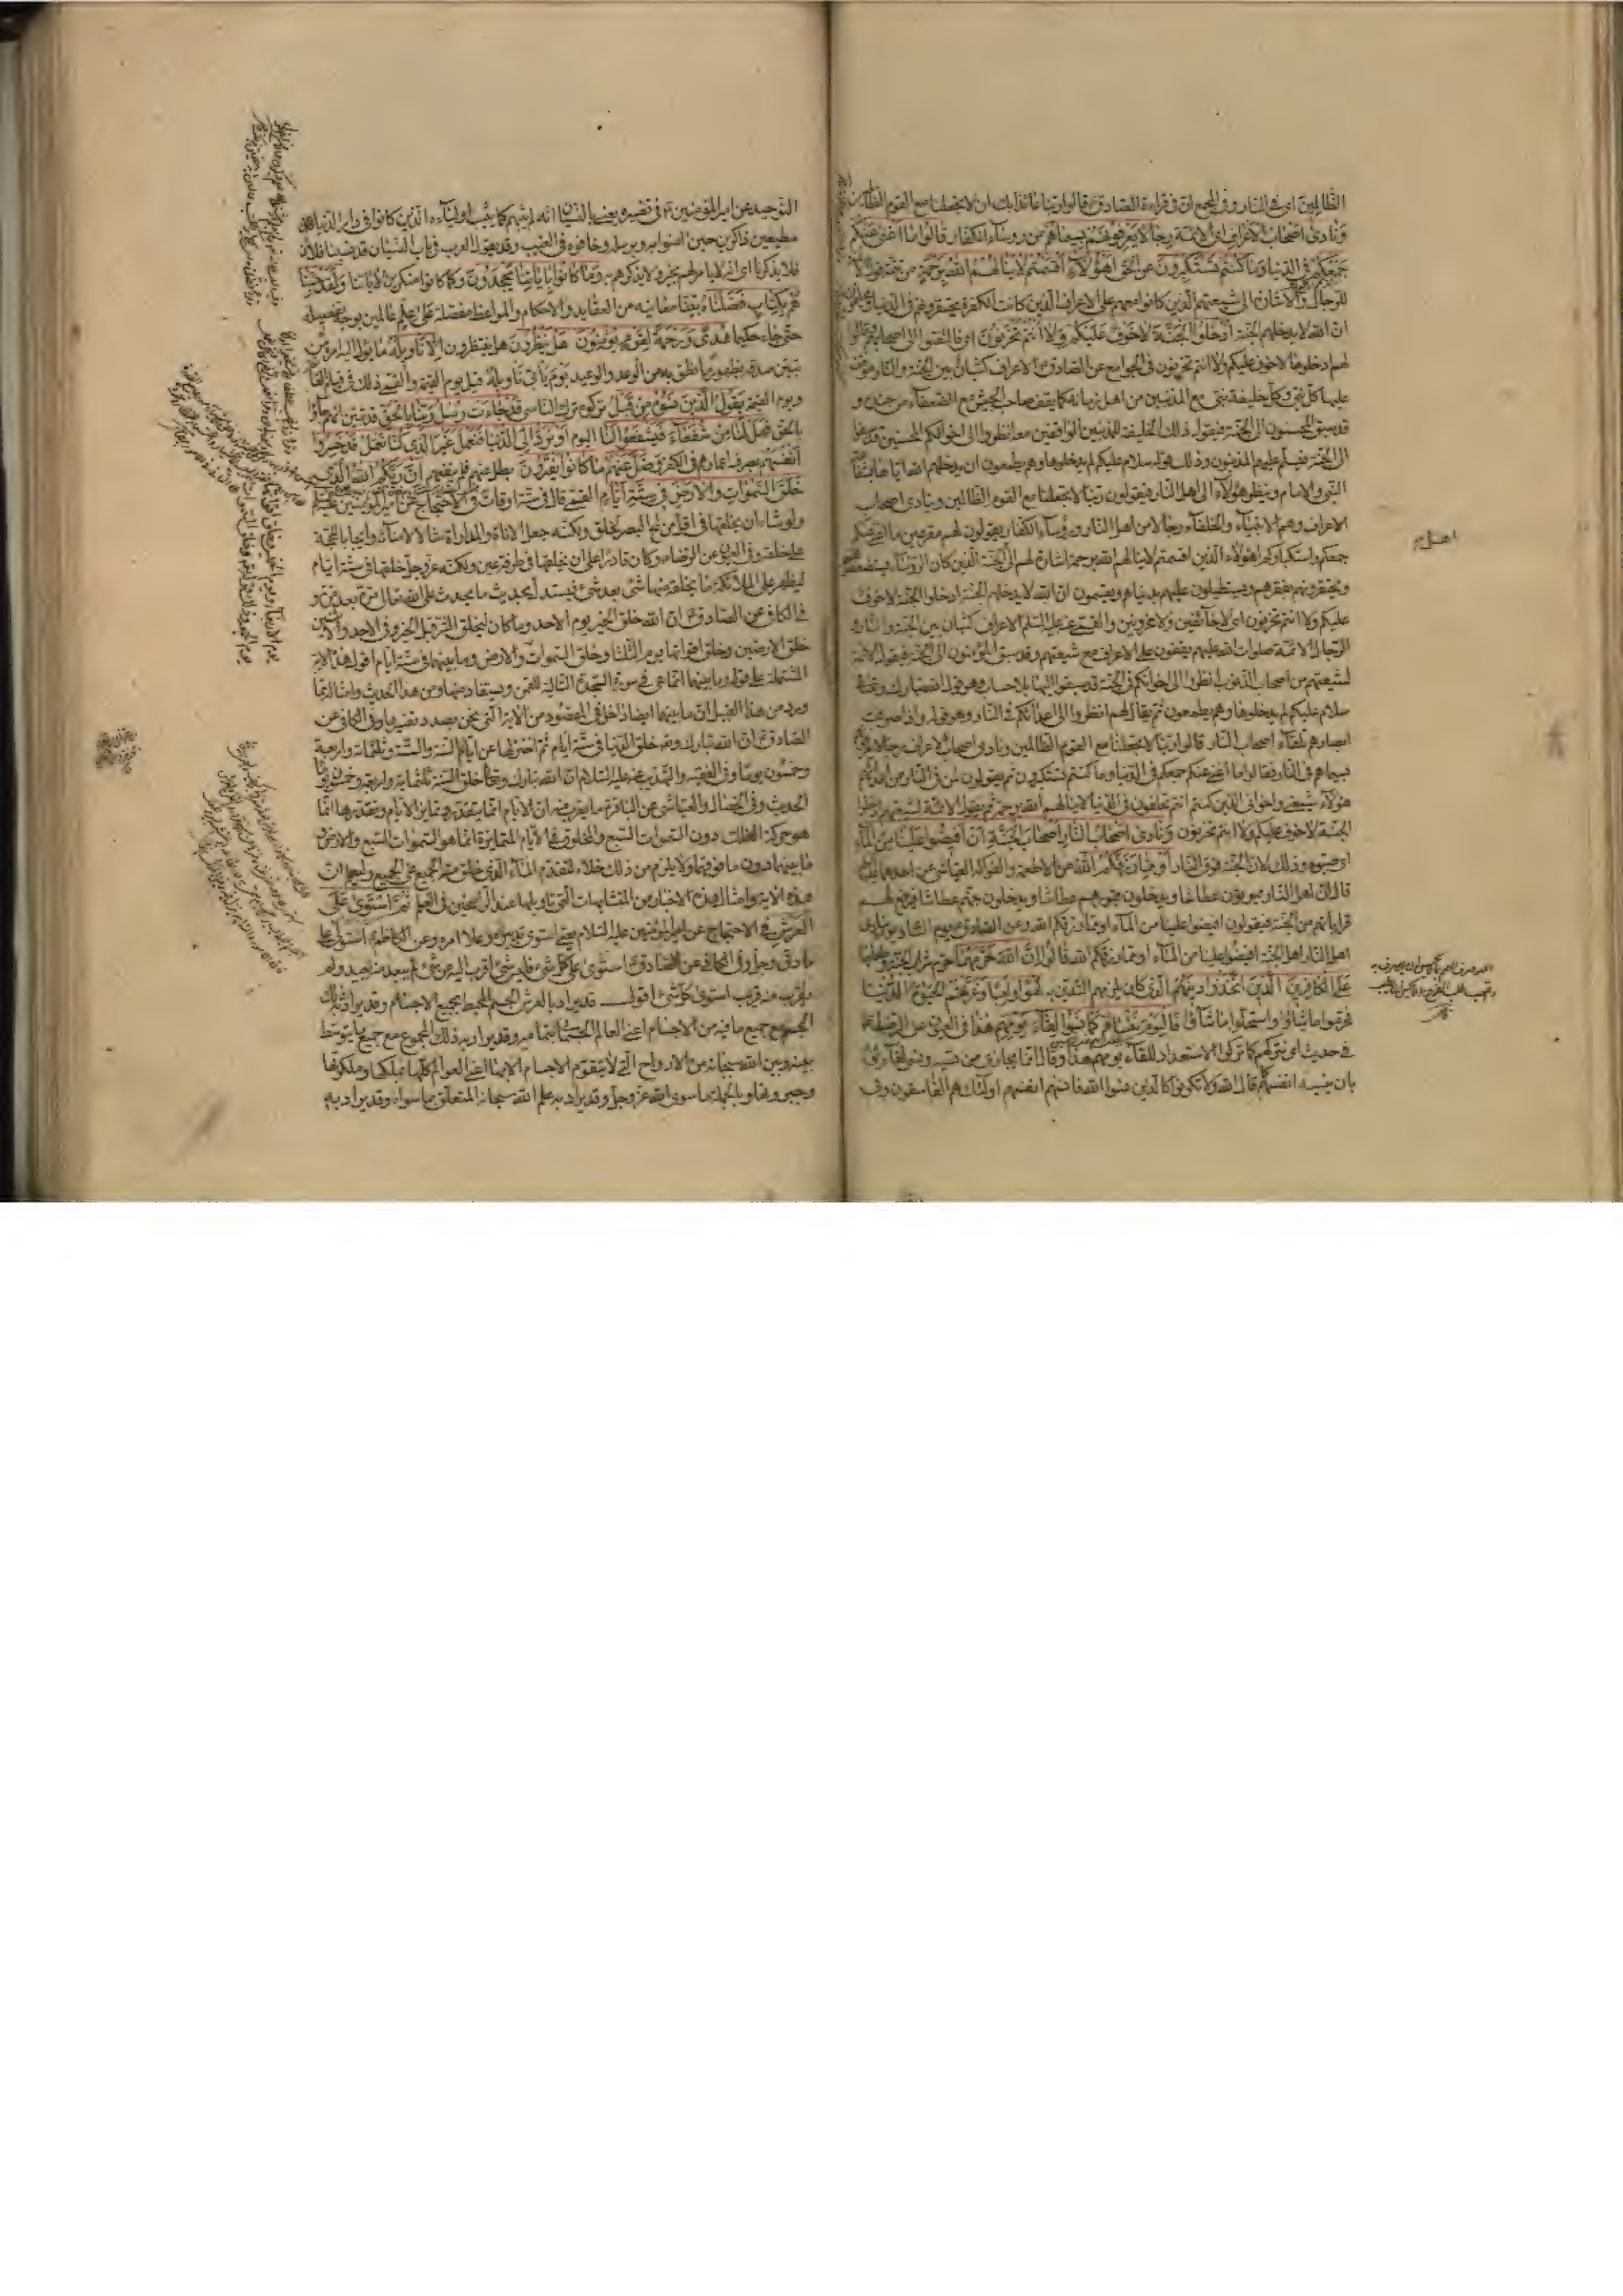 الظالمين اى فى النار وفى المجمع ان فى قراءة الصادق ع قالوا ربنا عائذا بك ان لا تجعلنا مع القوم الظالمين
وَنادى اصحاب الاعراف اى الائمة رجالا يعرفونهم بسيماهم من رؤساء الكفار قالوا ما اغنى عنكم
جمعكم فى الدنيا وما كنتم تستكبرون عن الحق اهؤلاء الذين اقسمتم لا ينالهم الله برحمة من تتمة قولهم
للرجال والاشارة الى شيعتهم الذين كانوا معهم على الاعراف الذين كانت الكفرة يحقرونهم فى الدنيا
ان الله لا يدخلهم الجنة ادخلوا الجنة لا خوف عليكم ولا انتم تحزنون اى فالتفتوا الى اصحابهم وقالوا
لهم ادخلوها لا خوف عليكم ولا انتم تحزنون فى الجوامع عن الصادق ع الاعراف كثبان بين الجنة والنار يوقف
عليها كل نبى وكل خليفة نبى مع المذنبين من اهل زمانه كما يقف صاحب الجيش مع الضعفاء من جنده و
قد سبق المحسنون الى الجنة فيقول ذلك الخليفة للمذنبين الواقفين معه انظروا الى اخوانكم المحسنين قد سبقوا
الى الجنة فيسلم عليهم المذنبون وذلك قوله سلام عليكم لم يدخلوها وهم يطمعون ان يدخلهم الله اياها بشفاعة
النبى والامام وينظر هؤلاء الى اهل النار فيقولون ربنا لا تجعلنا مع القوم الظالمين وينادى اصحاب
الاعراف وهم الانبياء والخلفاء رجالا من اهل النار ورؤساء الكفار يقولون لهم مقرعين ما اغنى عنكم
جمعكم واستكباركم اهؤلاء الذين اقسمتم لا ينالهم الله برحمة اشارة لهم الى اهل الجنة الذين كان الرؤساء يستضعفونهم
ويحتقرونهم بفقرهم ويستطيلون عليهم بدنياهم ويقسمون ان الله لا يدخلهم الجنة ادخلوا الجنة لا خوف
عليكم ولا انتم تحزنون اى لا خائفين ولا محزونين والقمى عنه عليه السلم الاعراف كثبان بين الجنة والنار و
الرجال الائمة صلوات الله عليهم يقفون على الاعراف مع شيعتهم وقد سبق المؤمنون الى الجنة فيقول الائمة
لشيعتهم من اصحاب الذنوب انظروا الى اخوانكم فى الجنة قد سبقوا اليها بلا حساب وهو قول الله تبارك وتعالى
سلام عليكم لم يدخلوها وهم يطمعون ثم يقال لهم انظروا الى اعدائكم فى النار وهو قوله واذا صرفت
ابصارهم تلقاء اصحاب النار قالوا ربنا لا تجعلنا مع القوم الظالمين ونادى اصحاب الاعراف رجالا يعرفونهم
بسيماهم فى النار فقالوا ما اغنى عنكم جمعكم فى الدنيا وما كنتم تستكبرون ثم يقولون لمن فى النار من اعدائهم
هؤلاء شيعتى واخوانى الذين كنتم انتم تحلفون فى الدنيا لا ينالهم الله برحمة ثم يقول الائمة لشيعتهم ادخلوا
الجنة لا خوف عليكم ولا انتم تحزنون وَنادى اصحاب النار اصحاب الجنة ان افيضوا علينا من الماء
اى صبوه وذلك لان الجنة فوق النار او مما رزقكم الله من الاطعمة والفواكه العياشى عن احدهما عليهما
قال ان اهل النار يموتون عطاشا ويدخلون قبورهم عطاشا ويدخلون جهنم عطاشا فيرفع لهم
قراباتهم من الجنة فيقولون افيضوا علينا من الماء او مما رزقكم الله وعن الصادق ع يوم التناد يوم ينادى
اهل النار اهل الجنة افيضوا علينا من الماء او مما رزقكم الله قالوا ان الله حرمهما
على الكافرين الذين اتخذوا دينهم الذى كان يلزمهم التدين به لهوا ولعبا وغرتهم الحيوة الدنيا
فحرموا ما شاؤا واستحلوا ما شاؤا فاليوم ننسهم كما نسوا لقاء يومهم هذا فى العيون عن الرضا
فى حديث اى نتركهم كما تركوا الاستعداد للقاء يومهم هذا وقال انما يجازى من نسيه ونسى لقاء يومه
بان ينسيه انفسهم كما قال الله ولا تكونوا كالذين نسوا الله فانسيهم انفسهم اولئك هم الفاسقون وفى
اهل م
التوحيد عن امير المؤمنين ع فى تفسيره يعنى بالنسيان انه لم يثبهم كما يثيب اولياءه الذين كانوا فى دار الدنيا
مطيعين ذاكرين حين امنوا به وبرسله وخافوه فى الغيب وقد يقول العرب فى باب النسيان قد نسينا فلان
فلا يذكرنا اى انه لا يامر لهم بخير ولا يذكرهم به وما كانوا باياتنا يجحدون وكما كانوا منكرين لاياتنا ولقد جئنا
هم بكتاب فصلناه بينا معانيه من العقايد والاحكام والمواعظ مفصلة على علم عالمين بوجه تفصيله
حتى جاء حكيما هدى ورحمة لقوم يؤمنون هل ينظرون هل ينتظرون الا تاويله ما يؤل اليه امره من
تبين صدقه بظهور ما نطق به من الوعد والوعيد يوم ياتى تاويله قيل يوم القيمة والقمى ذلك فى قيام القائم
ويوم القيمة يقول الذين نسوه من قبل تركوه ترك الناسى قد جاءت رسل ربنا بالحق قد تبين انهم جاؤا
بالحق فهل لنا من شفعاء فيشفعوا لنا اليوم او نرد الى الدنيا فنعمل غير الذى كنا نعمل قد خسروا
انفسهم بصرف اعمارهم فى الكفر وضل عنهم ما كانوا يفترون بطل عنهم فلم ينفعهم ان ربكم الله الذى
خلق السموات والارض فى ستة ايام القمى قال فى ستة اوقات وفى الاحتجاج عن امير المؤمنين عليه
ولو شاء ان يخلقها فى اقل من لمح البصر لخلق ولكنه جعل الاناة والمداراة مثالا لامنائه وايجابا للحجة
على خلقه وفى العيون عن الرضاء وكان قادرا على ان يخلقها فى طرفة عين ولكنه عز وجل خلقها فى ستة ايام
ليظهر على الملائكة ما يخلقه منها شئ بعد شئ فيستدل بحدوث ما يحدث على الله تعالى مرة بعد مرة و
فى الكافى عن الصادق ع ان الله خلق الخير يوم الاحد وما كان ليخلق الشر قبل الخير وفى الاحد والاثنين
خلق الارضين وخلق اقواتها يوم الثلثا وخلق السموات والارض وما بينهما فى ستة ايام اقول هذه الاية
المشتملة على قوله وما بينهما انما هى فى سورة السجدة التالية للقمن ويستفاد منها ومن هذا الحديث وامثاله مما
ورد من هذا القبيل ان ما بينهما ايضا داخل فى المقصود من الاية التى نحن بصدد تفسيرها وفى الكافى عن
الصادق ع ان الله تبارك وتعالى خلق الدنيا فى ستة ايام ثم اختزلها عن ايام السنة والسنة ثلثمائة واربعة
وخمسون يوما وفى الفقيه والتهذيب عنه عليه السلام ان الله تبارك وتعالى خلق السنة ثلثمائة
الحديث وفى الخصال والعياشى عن الباقر ع ما يقرب منه ان الايام انما يتقدر ويتمايز الايام وتقدرها انما
هو حركة الفلك دون السموات السبع والمخلوق فى الايام المتمايزة انما هو السموات السبع والارض
وما بينهما دون ما فوقها ولا يلزم من ذلك خلاء لتقدم الماء الذى خلق منه الجميع على الجميع وليعلم ان
هذه الاية وامثال هذه الاخبار من المتشابهات التى تاويلها عند الراسخين فى العلم ثم استوى على
العرش فى الاحتجاج عن امير المؤمنين عليه السلام يعنى استوى تدبيره وعلا امره وعن الكاظم استولى على
ما دق وجل وفى الكافى عن الصادق ع استوى على كل شئ فليس شئ اقرب اليه من شئ لم يبعد منه بعيد ولم
يقرب منه قريب استوى كل شئ اقول قد يراد بالعرش الجسم المحيط بجميع الاجسام وقد يراد به ذلك
الجسم مع جميع ما فيه من الاجسام اعنى العالم الجسمانى بتمامه وقد يراد به ذلك المجموع مع جميع ما يتوسط
بينه وبين الله سبحانه من الارواح التى لا يتقوم الاجسام الا بها اعنى العوالم كلها بملكها وملكوتها
وجبروتها وبالجملة ما سوى الله عز وجل وقد يراد به علم الله سبحانه المتعلق بما سواه وقد يراد به